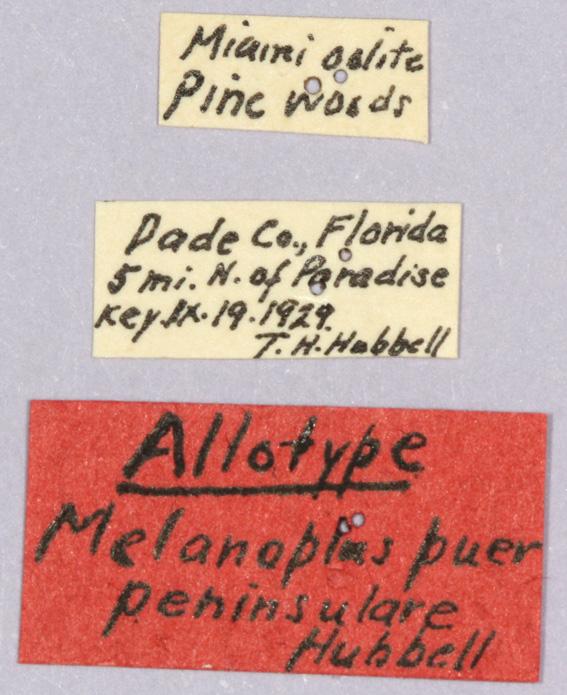 Miami oolite
Pine woods
Dade Co., Florida
5 mi. N. of Paradise
Key. IX. 19. 1929.
T. H. Hubbell
Allotype
Melanoplus puer
peninsulare
Hubbell